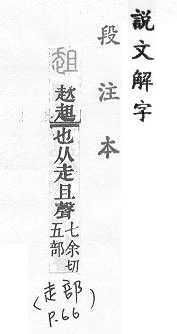 說文解字
段注本
趑趄也从走且聲
七余切
五部
(走部)
P.66